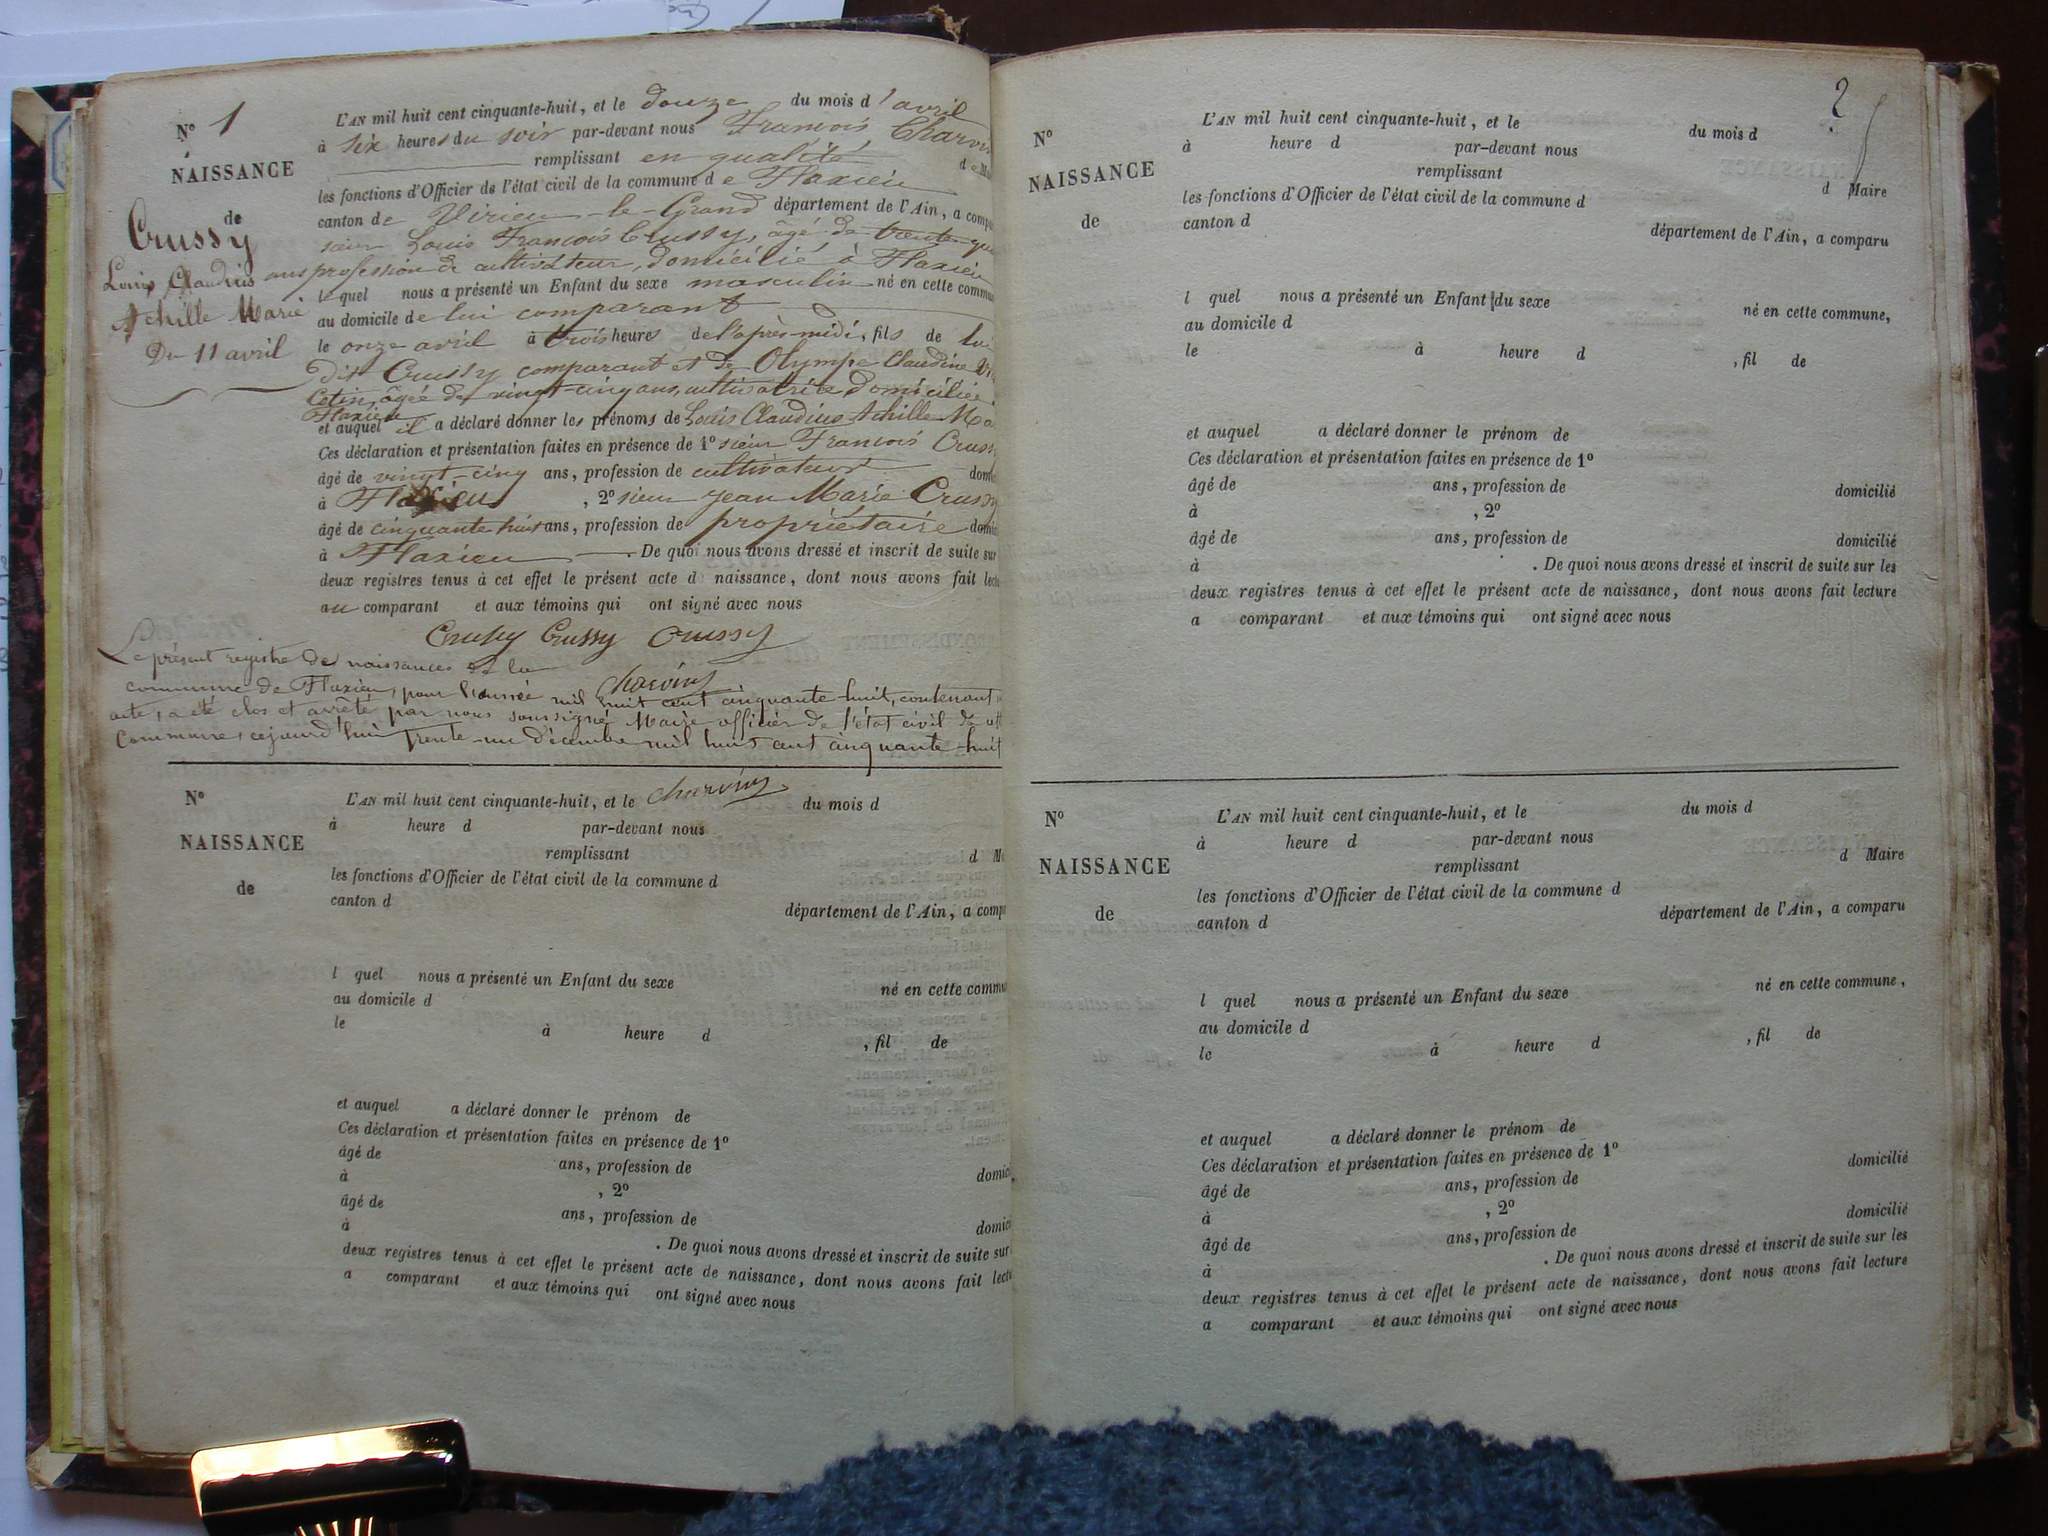 N° 1
NAISSANCE
de
Crussy
Louis Claudius
Achille Marie
Du 11 avril
L'AN mil huit cent cinquante-huit, et le douze du mois d'avril
à six heures du soir par-devant nous François Charvin
remplissant en qualité de
les fonctions d'Officier de l'état civil de la commune de Flaxieu
canton de Virieu-le-Grand département de l'Ain, a
sieur Louis François Crussy, âgé de trente-
ans profession de cultivateur, domicilié à Flaxieu
lequel nous a présenté un Enfant du sexe masculin né en cette
au domicile de lui comparant
le onze avril à trois heures de l'après-midi, fils de
dit Crussy comparant et de Olympe Claudine
âgée de vingt-cinq ans, cultivatrice domiciliée
Flaxieu
et auquel il a déclaré donner les prénoms de Louis Claudius Achille
Ces déclaration et présentation faites en présence de 1° sieur François Crussy
âgé de vingt-cinq ans, profession de cultivateur
à Flaxieu, 2° sieur Jean Marie Crussy
âgé de cinquante huit ans, profession de propriétaire
à Flaxieu. De quoi nous avons dressé et inscrit de suite sur
deux registres tenus à cet effet le présent acte d naissance, dont nous avons fait
au comparant et aux témoins qui ont signé avec nous
Crussy Crussy Crussy
Charvin
Le présent registre de naissances de la
commune de Flaxieu, pour l'année mil huit cent cinquante-huit, contenant
acte, a été clos et arrêté par nous soussigné Maire officier de l'état civil de
Commune, cejourd'hui trente-un décembre mil huit cent cinquante-huit
Charvin
N°
NAISSANCE
de
L'AN mil huit cent cinquante-huit, et le du mois d
à heure d par-devant nous
remplissant d
les fonctions d'Officier de l'état civil de la commune d
canton d
département de l'Ain, a
l quel nous a présenté un Enfant du sexe
né en cette
au domicile d
le à heure d
, fil de
et auquel a déclaré donner le prénom de
Ces déclaration et présentation faites en présence de 1°
âgé de ans, profession de
à , 2°
âgé de ans, profession de
à . De quoi nous avons dressé et inscrit de suite sur
deux registres tenus à cet effet le présent acte de naissance, dont nous avons fait
a comparant et aux témoins qui ont signé avec nous
2
N°
NAISSANCE
de
L'AN mil huit cent cinquante-huit, et le du mois d
à heure d par-devant nous
remplissant d Maire
les fonctions d'Officier de l'état civil de la commune d
canton d
département de l'Ain, a comparu
l quel nous a présenté un Enfant du sexe
né en cette commune,
au domicile d
le à heure d , fil de
et auquel a déclaré donner le prénom de
Ces déclaration et présentation faites en présence de 1°
âgé de ans, profession de domicilié
à , 2°
âgé de ans, profession de domicilié
à . De quoi nous avons dressé et inscrit de suite sur les
deux registres tenus à cet effet le présent acte de naissance, dont nous avons fait lecture
a comparant et aux témoins qui ont signé avec nous
N°
NAISSANCE
de
L'AN mil huit cent cinquante-huit, et le du mois d
à heure d par-devant nous
remplissant d Maire
les fonctions d'Officier de l'état civil de la commune d
canton d département de l'Ain, a comparu
l quel nous a présenté un Enfant du sexe né en cette commune,
au domicile d
le à heure d , fil de
et auquel a déclaré donner le prénom de
Ces déclaration et présentation faites en présence de 1°
âgé de ans, profession de domicilié
à , 2°
âgé de ans, profession de domicilié
à . De quoi nous avons dressé et inscrit de suite sur les
deux registres tenus à cet effet le présent acte de naissance, dont nous avons fait lecture
a comparant et aux témoins qui ont signé avec nous